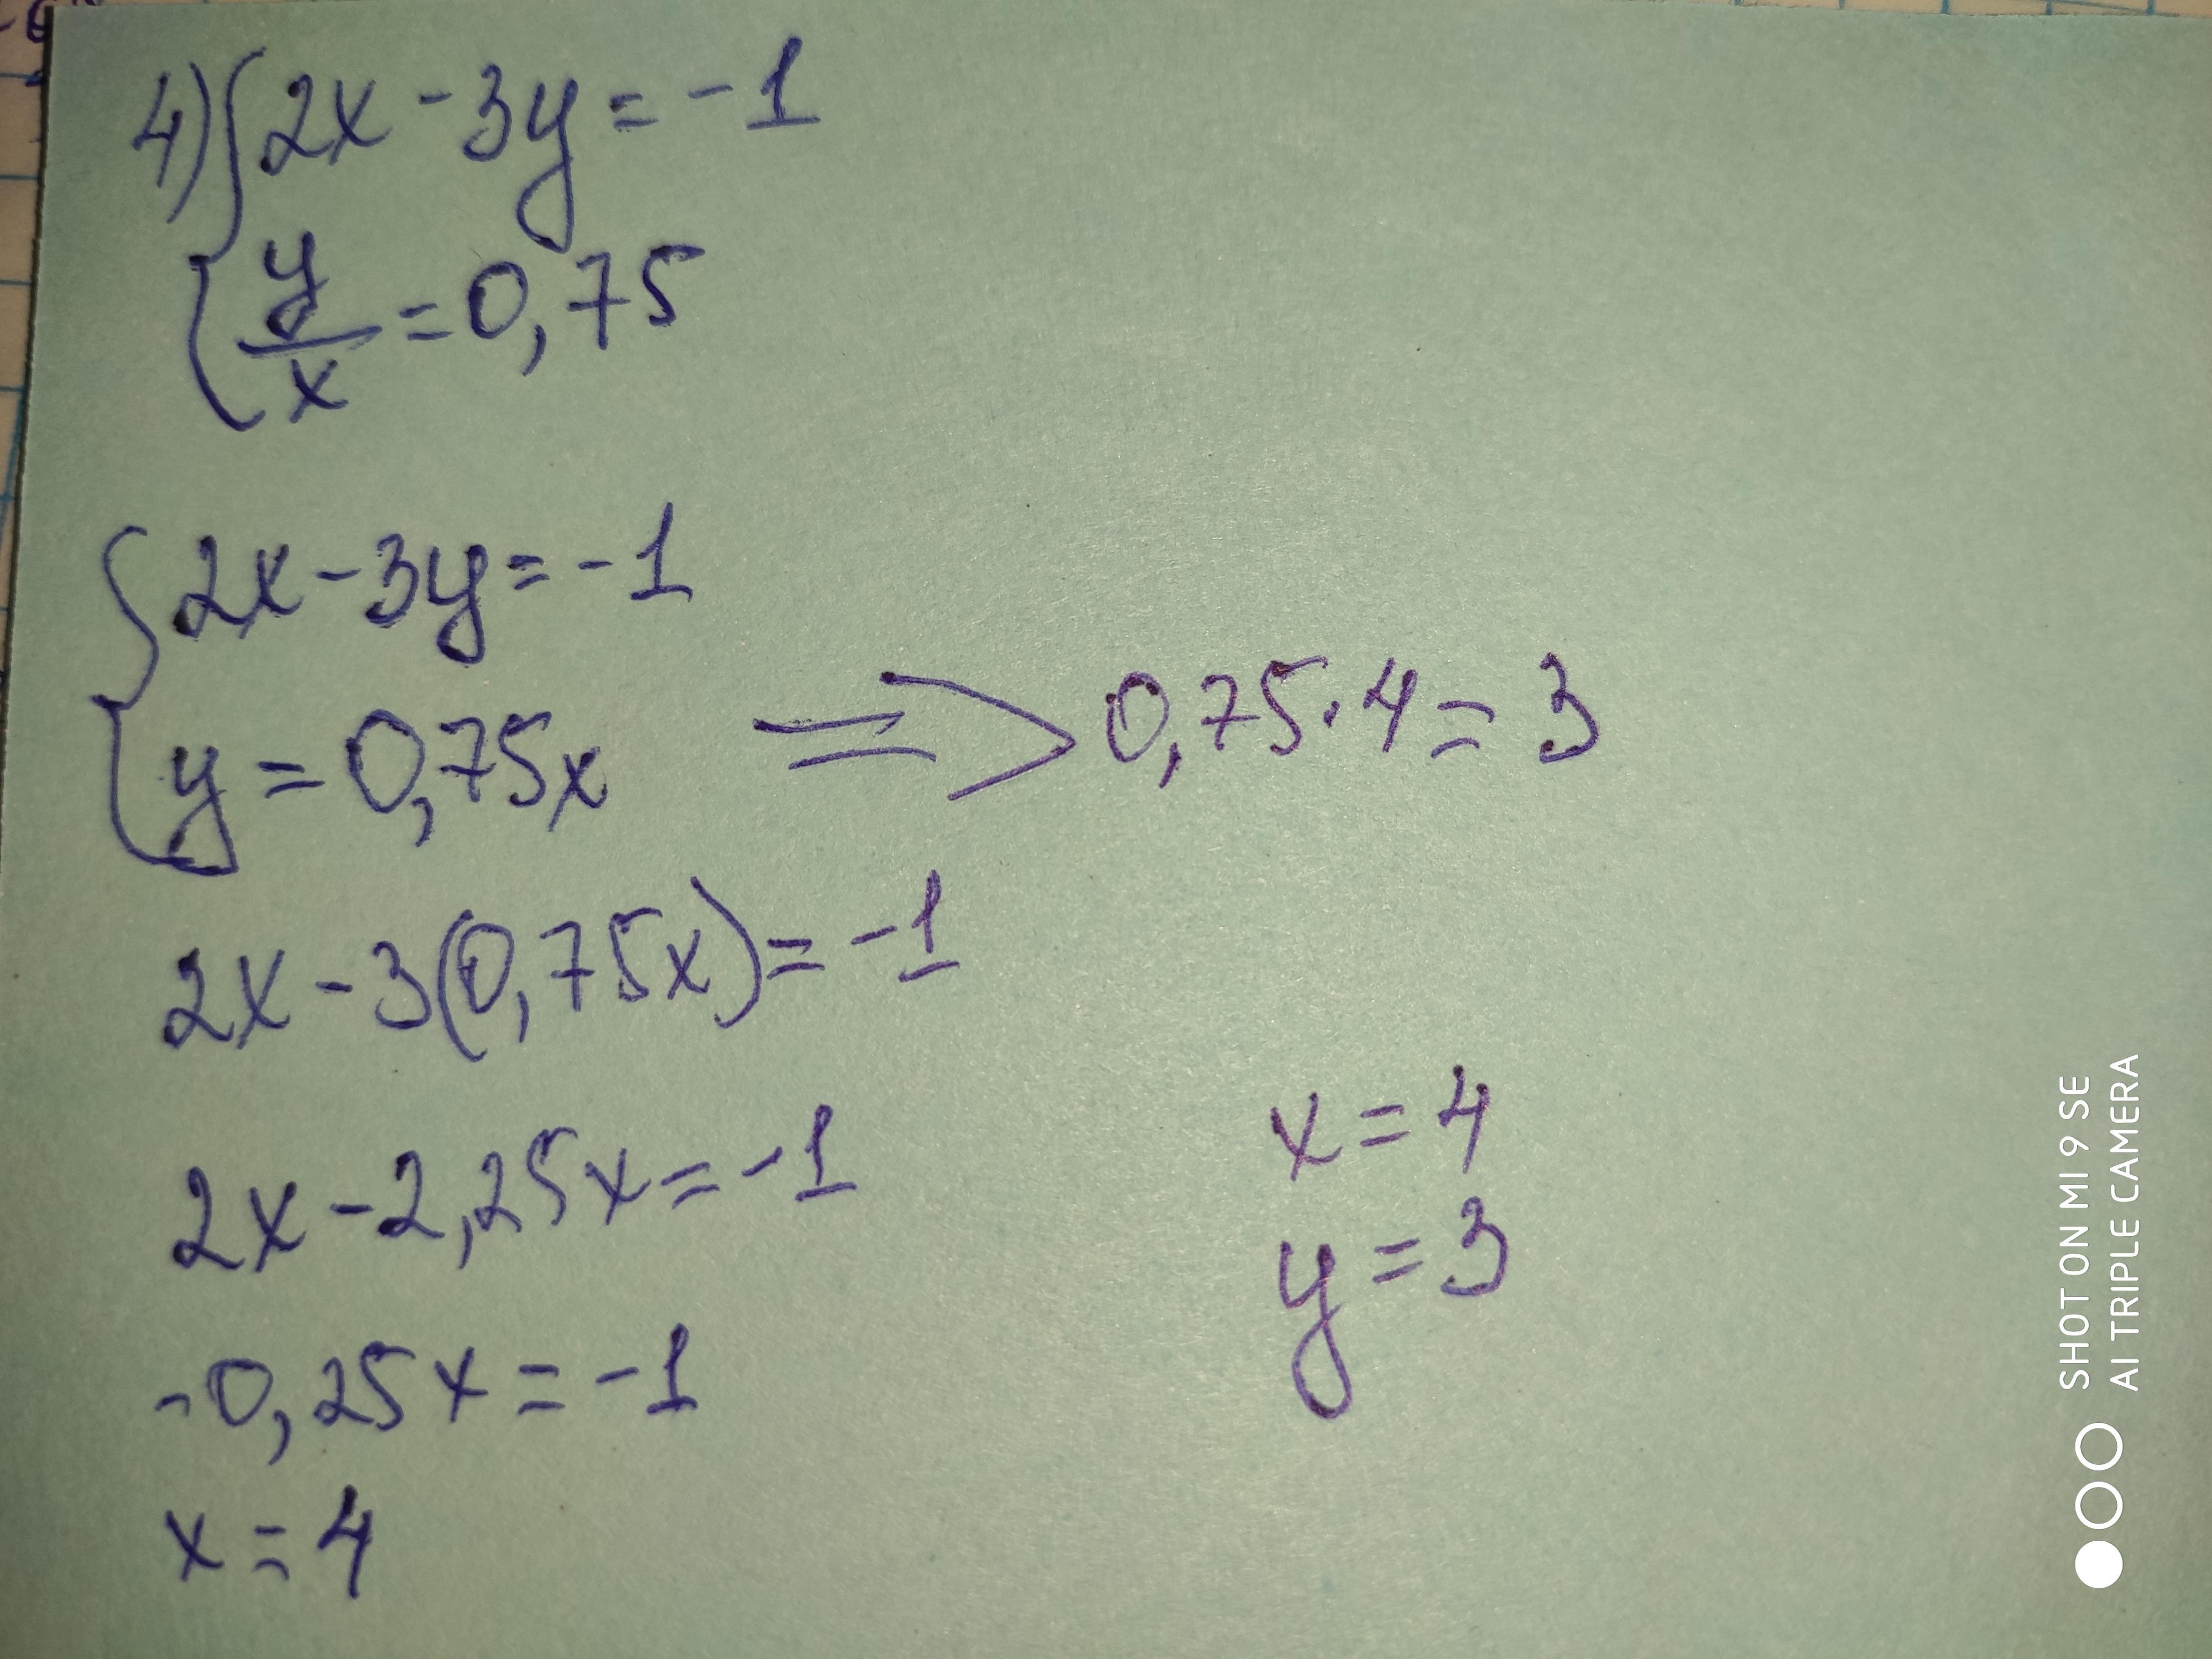 4) { 2x - 3y = -1
y/x = 0,75
{ 2x - 3y = -1
y = 0,75x => 0,75·4 = 3
2x - 3(0,75x) = -1
2x - 2,25x = -1
-0,25x = -1
x = 4
x = 4
y = 3
SHOT ON MI 9 SE
AI TRIPLE CAMERA